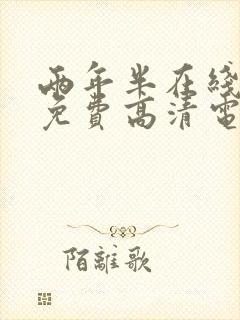 两年半在线
免费高清电
陌離歌